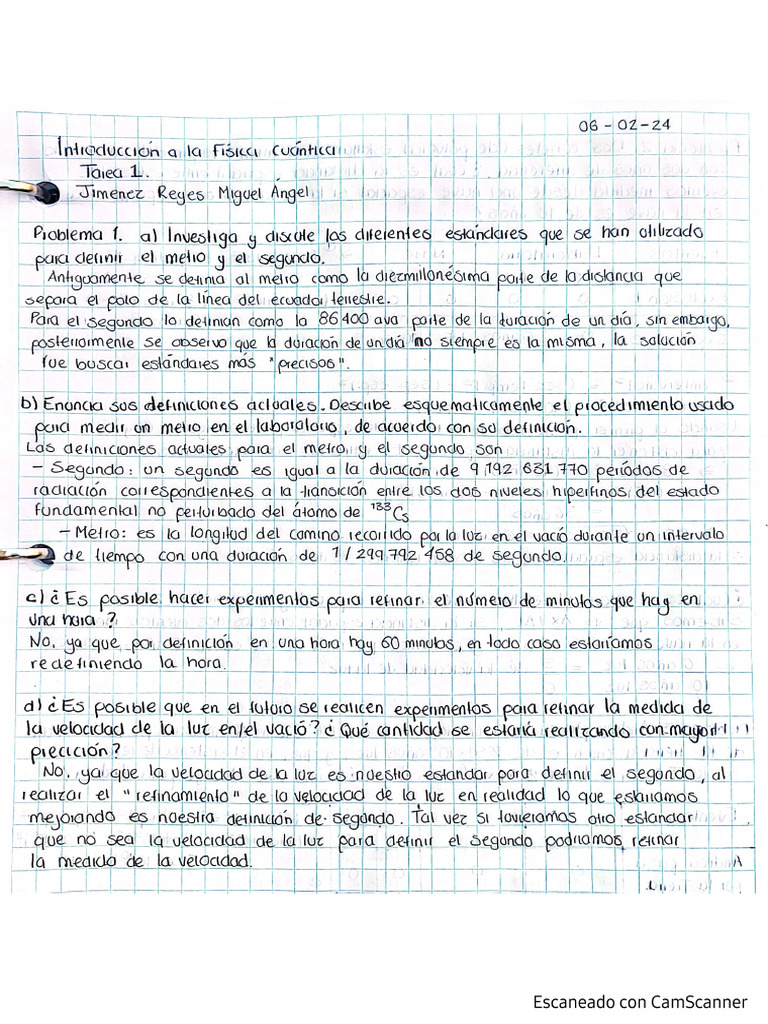 06-02-24
Introducción a la Física Cuántica
Tarea 1.
Jiménez Reyes Miguel Ángel
Problema 1. a) Investiga y discute los diferentes estándares que se han utilizado
para definir el metro y el segundo.
Antiguamente se definía al metro como la diezmillonésima parte de la distancia que
separa el polo de la línea del ecuador terrestre.
Para el segundo lo definían como la 86400 ava parte de la duración de un día, sin embargo,
posteriormente se observo que la duración de un día no siempre es la misma, la solución
fue buscar estándares más "precisos".
b) Enuncia sus definiciones actuales. Describe esquematicamente el procedimiento usado
para medir un metro en el laboratorio, de acuerdo con su definición.
Las definiciones actuales para el metro y el segundo son
- Segundo: un segundo es igual a la duración de 9 192 631 770 periódos de
radiación correspondientes a la transición entre los dos niveles hiperfinos del estado
fundamental no perturbado del átomo de ¹³³Cs
- Metro: es la longitud del camino recorrido por la luz en el vació durante un intervalo
de tiempo con una duración de 1/299 792 458 de segundo.
c) ¿Es posible hacer experimentos para refinar el número de minutos que hay en
una hora?
No, ya que por definición en una hora hay 60 minutos, en todo caso estaríamos
redefiniendo la hora.
d) ¿Es posible que en el futuro se realicen experimentos para refinar la medida de
la velocidad de la luz en el vació? ¿Qué cantidad se estaría realizando con mayor
precición?
No, ya que la velocidad de la luz es nuestro estandar para definir el segundo, al
realizar el "refinamiento" de la velocidad de la luz en realidad lo que estaríamos
mejorando es nuestra definición de segundo. Tal vez si tuvieramos otro estandar
que no sea la velocidad de la luz para definir el segundo podríamos refinar
la medida de la velocidad.
Escaneado con CamScanner